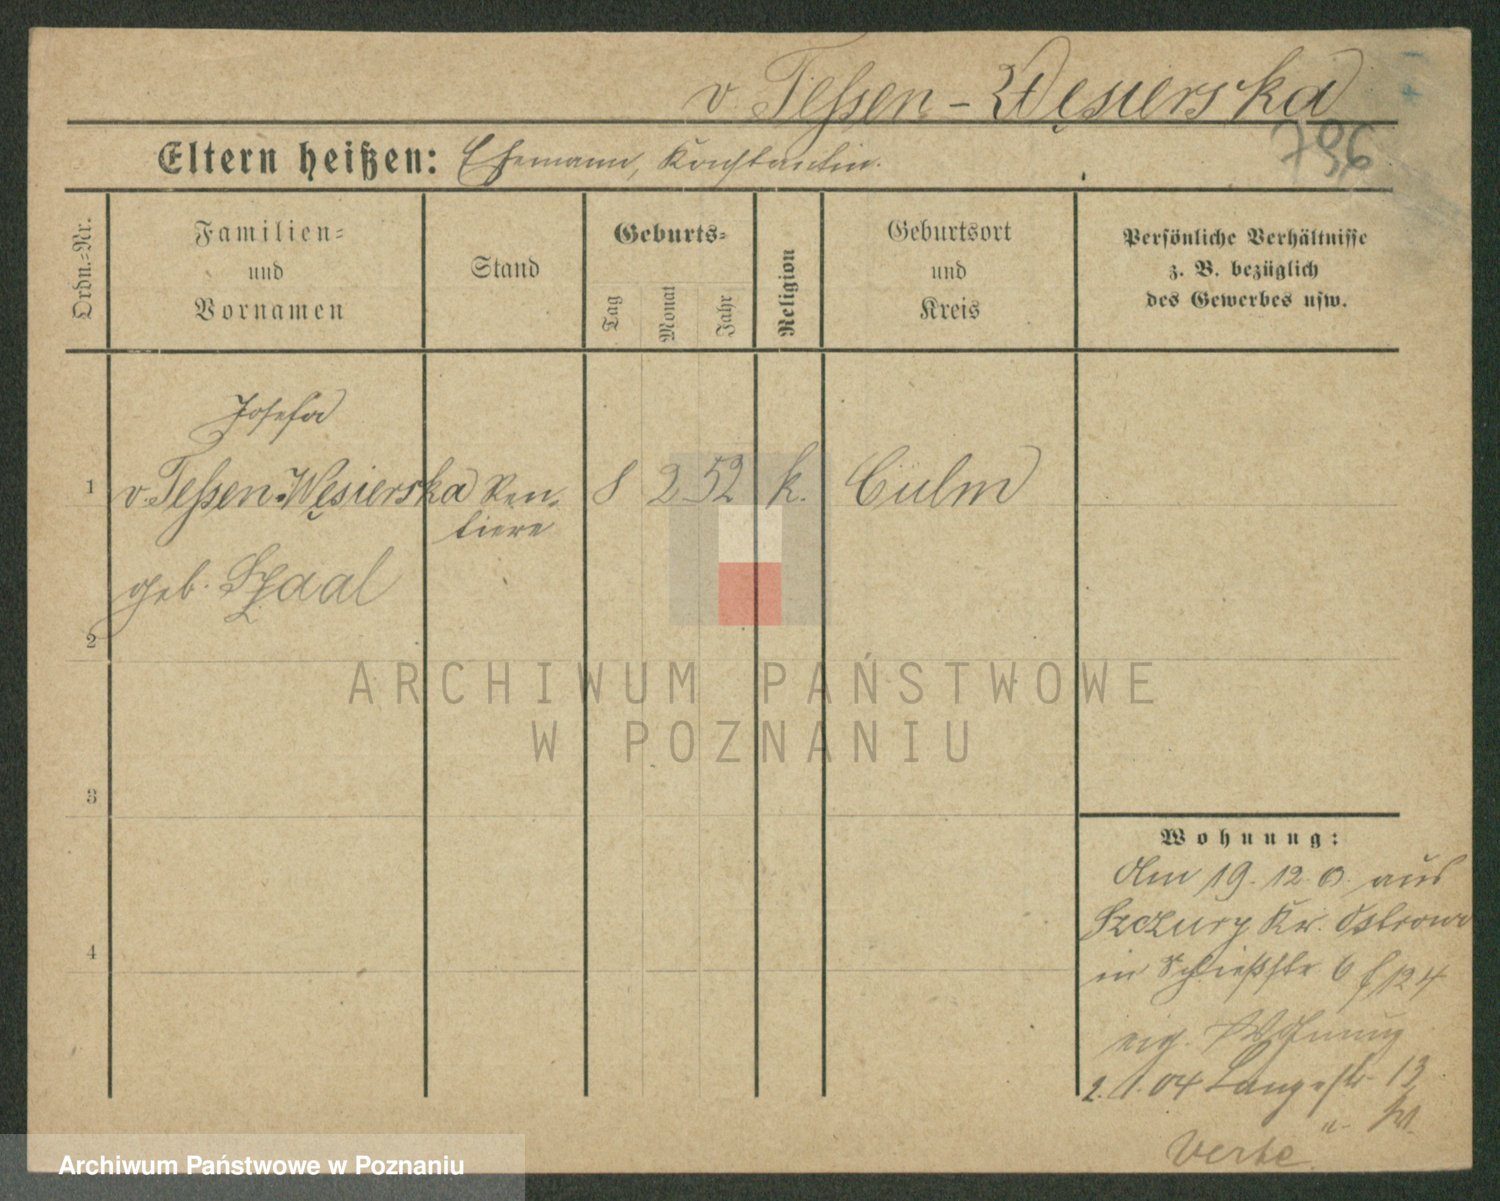 v. Tessen-Węsierska
796
Eltern heißen: Ehemann, Konstantin.
Ordn.-Nr.
Familien-
und
Vornamen
Stand
Geburts-
Tag
Monat
Jahr
Religion
Geburtsort
und
Kreis
Persönliche Verhältnisse
z. B. bezüglich
des Gewerbes usw.
Josefa
1 v. Tessen-Węsierska Ren- 8 2 52 k. Culm
tiere
geb. Szaal
2
3
4
Wohnung:
Am 19. 12. 0. aus
Szczury Kr. Ostrowo
in Schießstr 6
eig. Wohnung
2. 1. 04 Langestr 13
ARCHIWUM PAŃSTWOWE
W POZNANIU
Archiwum Państwowe w Poznaniu